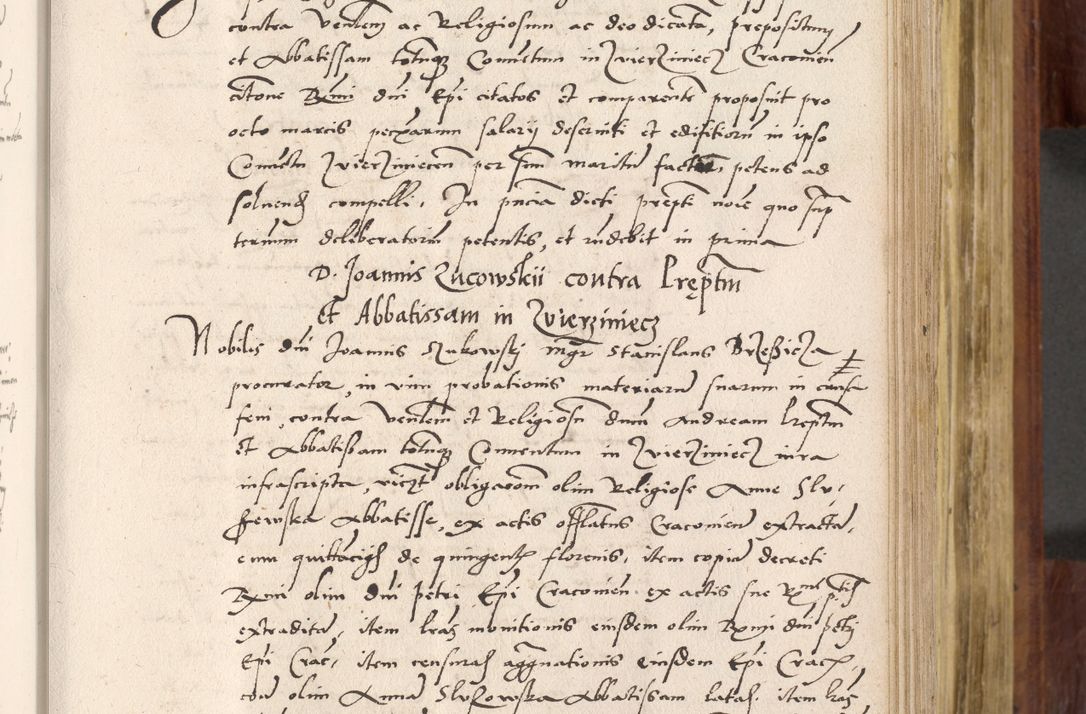 contra Venlem ac Religiosum ac deo dicata, prepositum
et Abbatissam totumq Conventum in Zvierziniecz Cracovien
citone Rmi dni Epi citatos et comparente proposuit pro
octo marcis pecuarum salarij deserviti et edifitiorum in ipso
Conventu Zvierziniecen per suu maritu factum, petens ad
solvend compelli. In pncia dicti prepti noie quo sup
terminum deliberatorium petentis, et rndebit in prima
D. Joannis Zucowskii contra Preptm
Et Abbatissam in Zvierziniecz
Nobilis dni Joannis Szukowskj mgr Stanislaus Brzeszicza
procurator, in vim probationis materiarum suarum in causa
feni, contra Venlem et Religiosu dnm Andream Preptm
Et Abbatissam totumq Conventum in Zvierziniecz iura
infrascripta, viczt obligaconem olim Religiose Anne Slu-
szewska Abbatisse, ex actis offlatus Cracovien extractā,
cum quittācijs de quingentz florenis, item copia decreti
Rmi olim dni petri Epi Cracovien ex actis sue Rme ptis
extraditā, item lras monitionis eiusdem olim Rmi dni petri
Epi Crac, item censuras aggrauationis Eiusdem Epi Crac,
cōa olim Anna Sluzowska Abbatissam latas. item lras